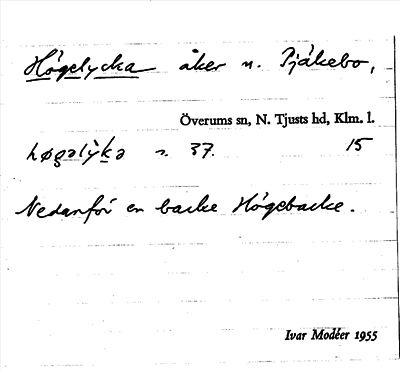 Högelycka åker n. Pjåkebo,
Överums sn, N. Tjusts hd, Klm. l.
høgəlỳkə s. 37. 15
Nedanför en backe Högebacke.
Ivar Modéer 1955